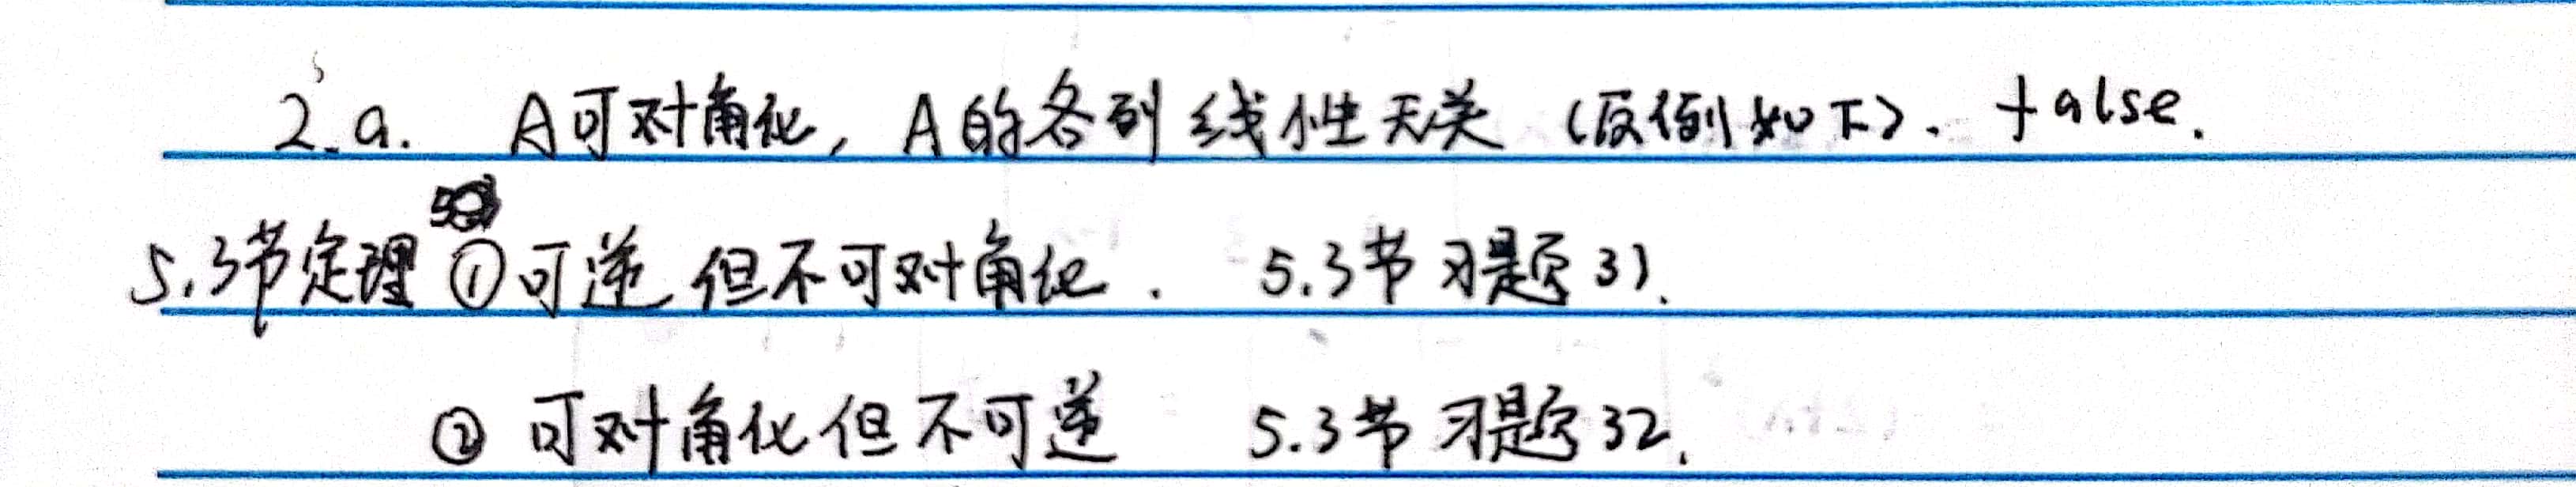 2.a. A可对角化, A的各列线性无关 (反例如下). false.
5.3节定理 ①可逆但不可对角化. 5.3节习题31.
② 可对角化但不可逆 5.3节习题32.